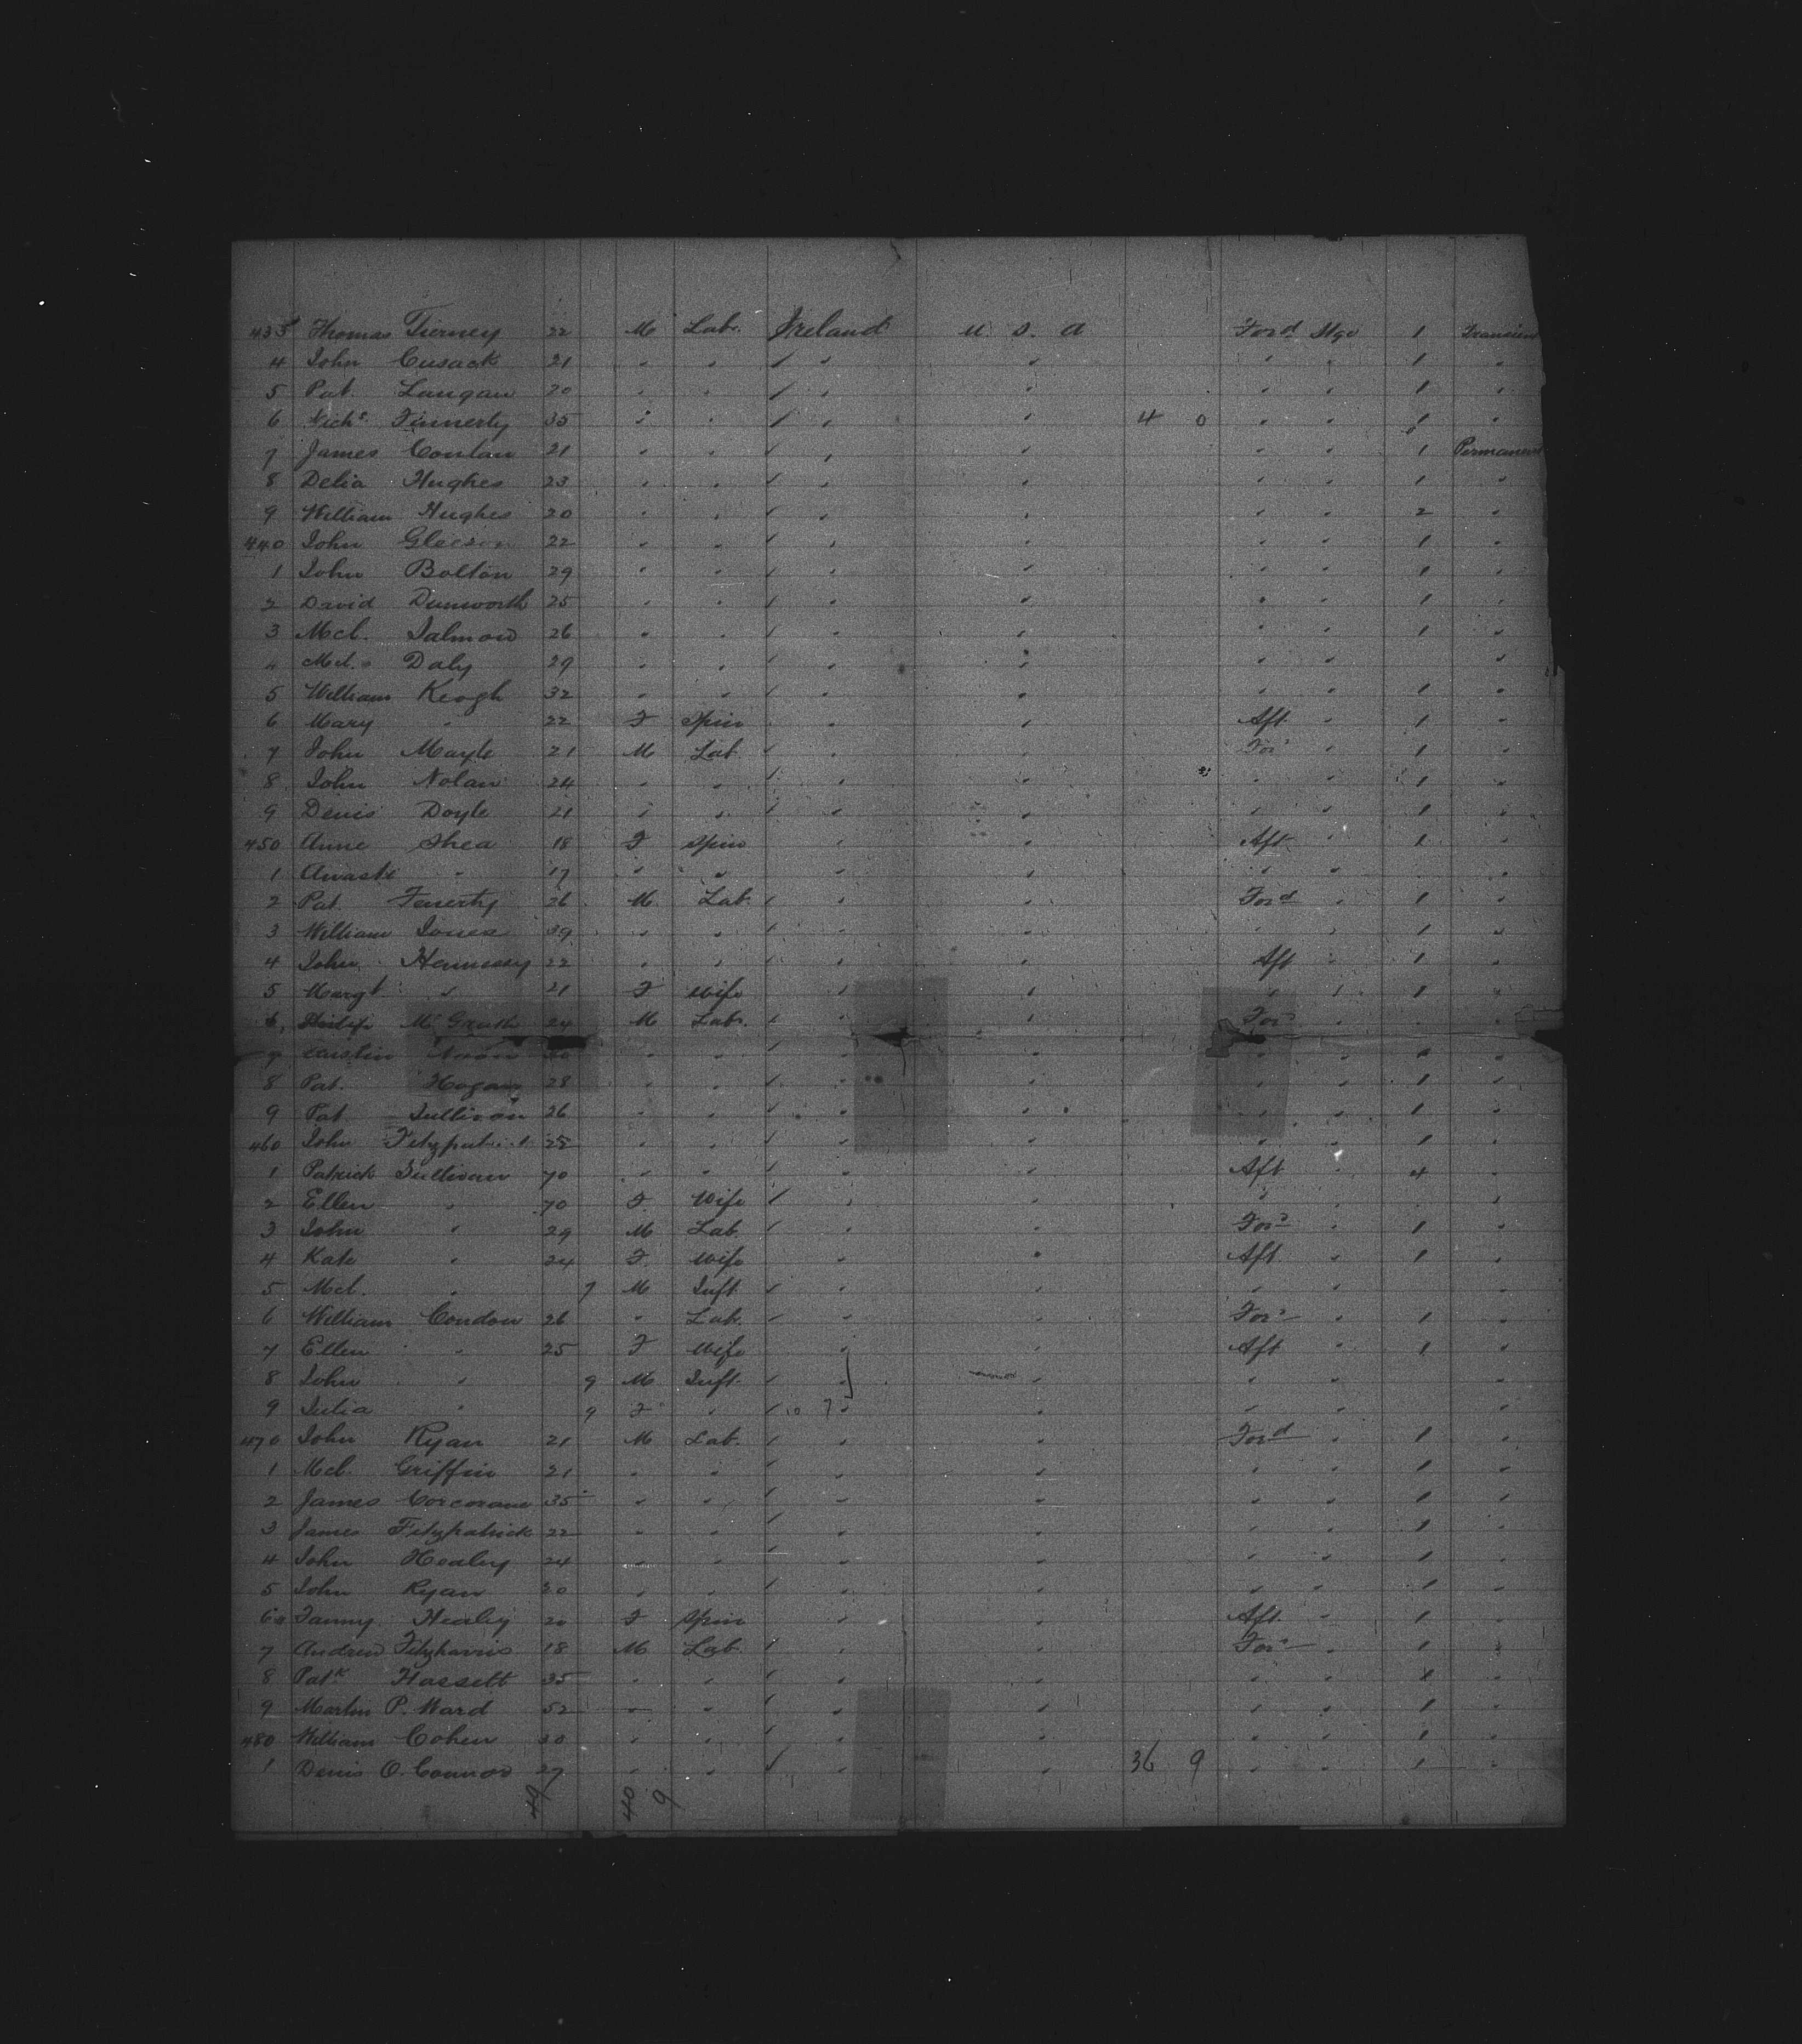 433 Thomas Tierney 22 M Lab. Ireland U. S. A Ford Stge 1 Transien
4 John Cusack 21 " " / " " " " 1 "
5 Pat. Langan 20 " " / " " " " 1 "
6 Nichs. Finnerty 35 " " / " " 4 0 " " 1 "
7 James Conlan 21 " " / " " " " 1 Permanent
8 Delia Hughes 23 " " / " " " " 1 "
9 William Hughes 20 " " / " " " " 2 "
440 John Gleeson 22 " " / " " " " 1 "
1 John Bolton 29 " " / " " " " 1 "
2 David Dunworth 25 " " / " " " " 1 "
3 Mcl. Salmon 26 " " / " " " " 1 "
4 Mcl. Daly 29 " " / " " " " "
5 William Keogh 32 " " / " " " " 1 "
6 Mary " 22 F Spin " " Aft. " 1 "
7 John Mayle 21 M Lab / " " Ford " 1 "
8 John Nolan 24 " " / " " " " 1 "
9 Denis Doyle 21 " " / " " " " 1 "
450 Anne Shea 18 F Spin " " Aft. " 1 "
1 " 17 " " " " " " "
2 Pat. Fenerty 26 M. Lab. / " " Ford " 1 "
3 William Jones 39 " " / " " " " 1 "
4 John Hennessy 22 " " / " " Aft " 1 "
5 Margt. " 21 F Wife " " " " 1 "
6 Philip McGrath 24 M Labr. / " " Ford " "
7 Austin " " / " " " " 1 "
8 Pat. Hogan 28 " " / " " " " 1 "
9 Pat Sullivan 26 " " / " " " " 1 "
460 John Fitzpatrick 22 " " / " " " " 1 "
1 Patrick Sullivan 70 " " / " " Aft " 4 "
2 Ellen " 70 F. Wife / " " " "
3 John " 29 M Lab. / " " Ford " 1 "
4 Kate " 24 F. Wife " " Aft. " 1 "
5 Mcl. " 7 M Inft / " " " " "
6 William Condon 26 " Lab. / " " Ford " 1 "
7 Ellen " 25 F Wife " " Aft " 1 "
8 John " 9 M Inft. / " " " " "
9 Julia " 9 F " / 10 7 " " " " "
470 John Ryan 21 M Lab. / " " Ford " 1 "
1 Mcl. Griffin 21 " " / " " " " 1 "
2 James Corcoran 35 " " / " " " " 1 "
3 James Fitzpatrick 22 " " / " " " " 1 "
4 John Healey 24 " " / " " " " 1 "
5 John Ryan 20 " " / " " " " 1 "
6 Fanny Healey 20 F Spin " " Aft. " 1 "
7 Andrew Fitzharris 18 M Lab. / " " Ford " 1 "
8 Patk. Hassett 35 " " / " " " " 1 "
9 Martin P. Ward 52 " " / " " " " 1 "
480 William Cohen 30 " " / " " " " 1 "
1 Denis O. Connor 27 " " / " " 36 9 " " 1 "
49 40 9